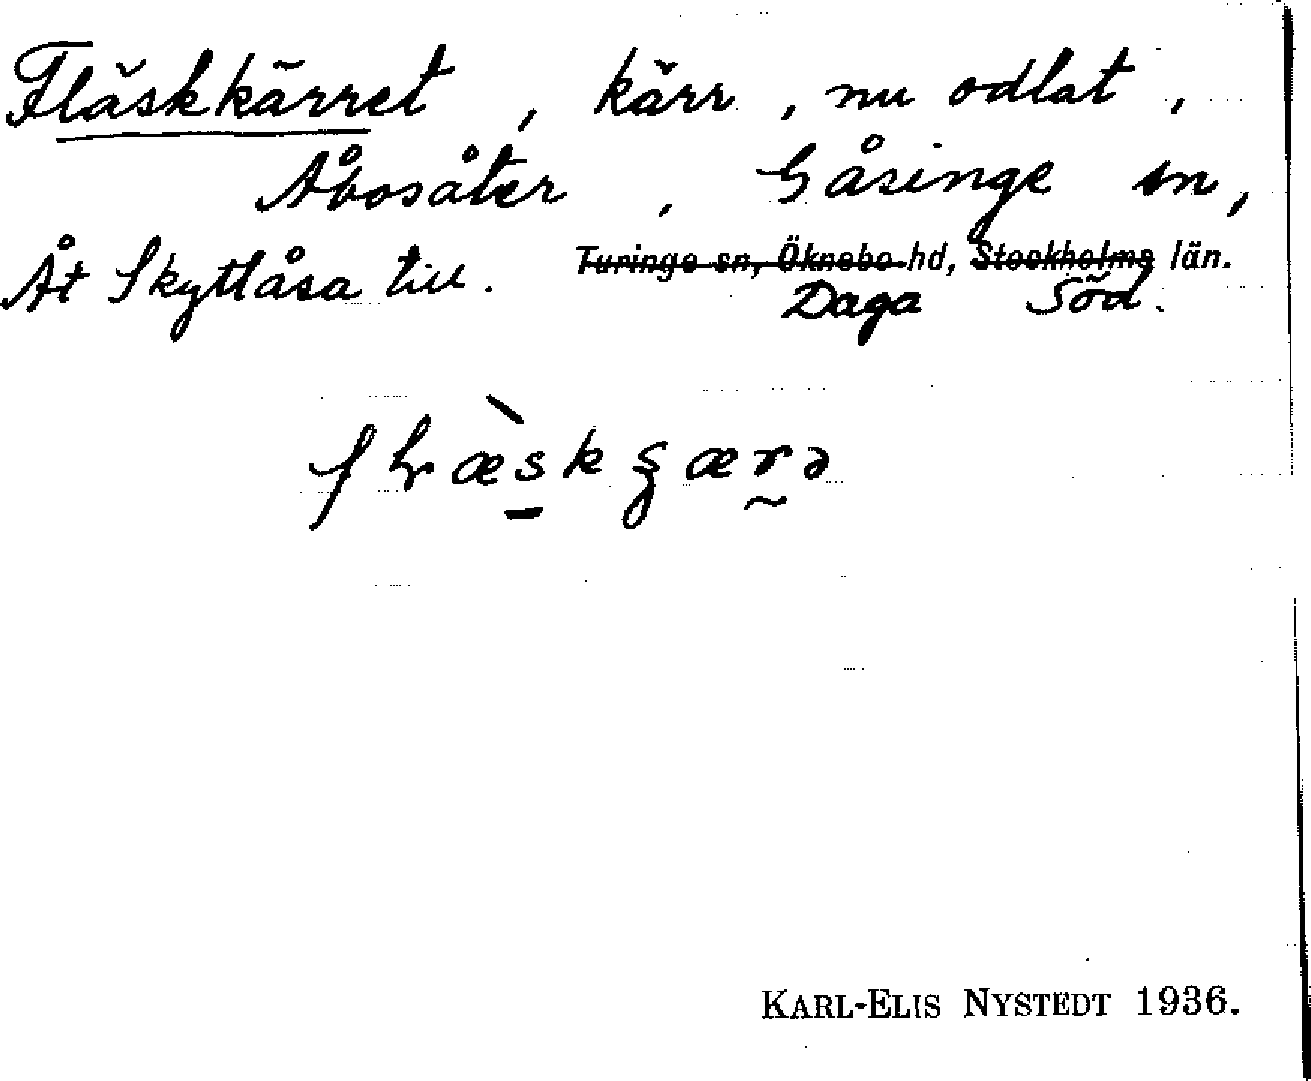 Fläskkärret, kärr, nu odlat,
Åbosåter, Gåsinge sn,
Åt Skyttlåsa till. Turinge sn, Öknebo hd, Stockholms län.
Daga Söd.
KARL-ELIS NYSTEDT 1936.